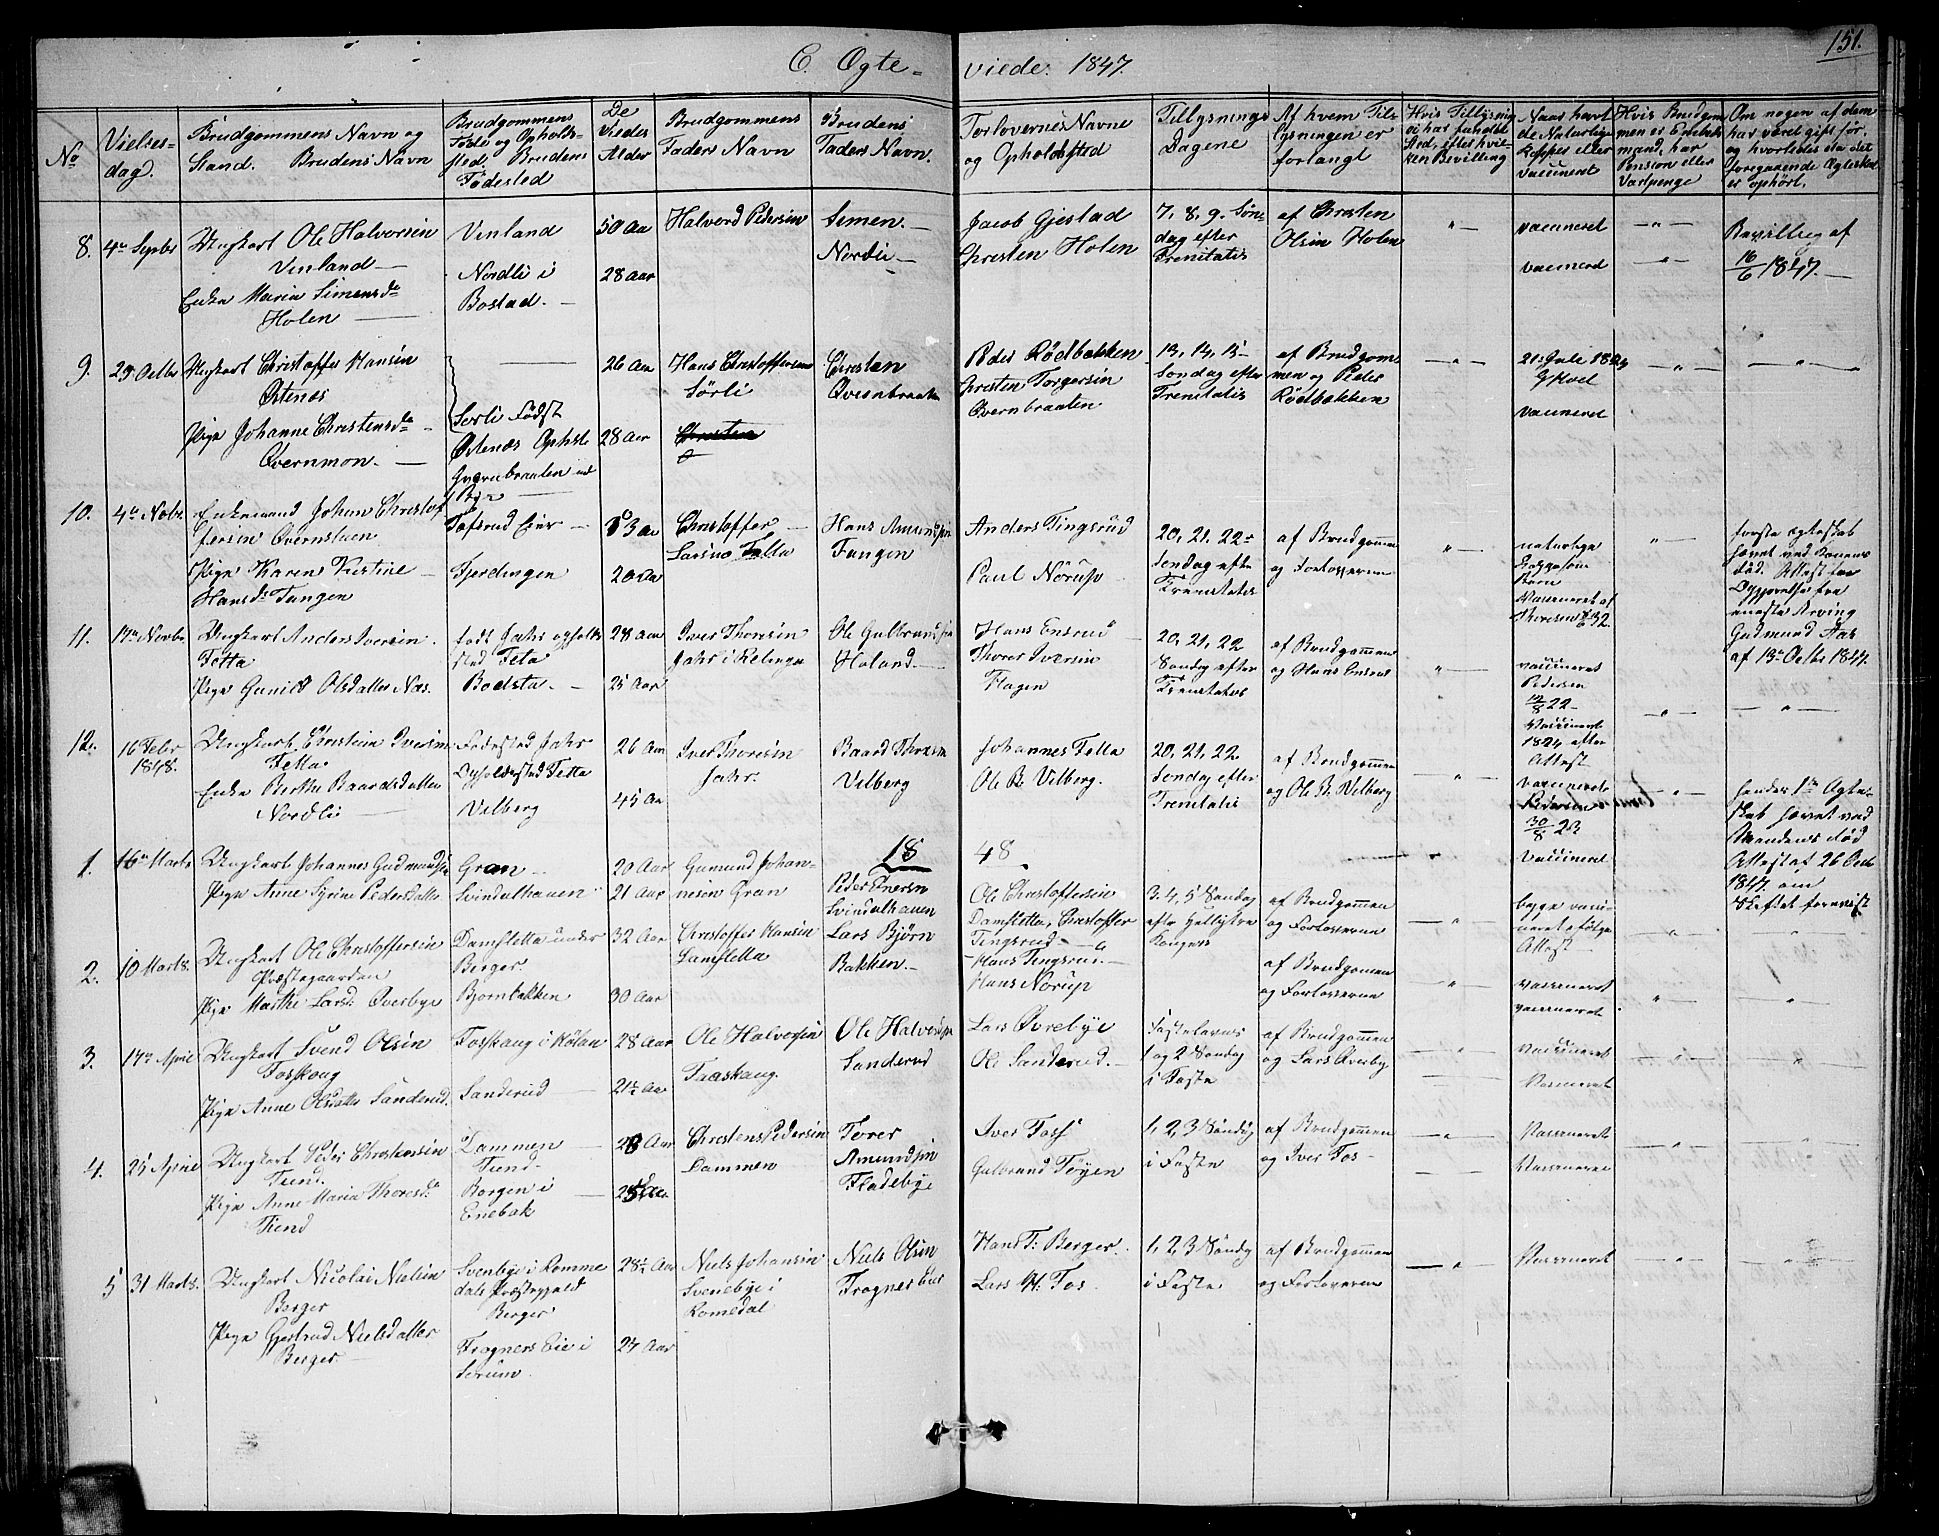 151.
C. Ægte=
viede. 1847.
No
Vielses-
dag.
Brudgommens Navn og
Stand. Brudens Navn
Brudgommens
Føde og Opholds-
sted. Brudens
Fødested
De
Vieedes
Alder
Brudgommens
Faders Navn
Brudens
Faders Navn.
Forlovernes Navne
og Opholdssted
Tillysnings
Dagene
Af hvem Til-
lysningen er
forlangt
Hvis Tillysning
ei har fundet
Sted, efter hvil-
ken Bevilling
Naar havt
de Naturlige
Kopper eller
vaccineret
Hvis Brudgom-
men er Enke-
mand, har
Pension eller
Vartpenge
Om nogen af dem
har været gift før,
og hvorledes da det
foregaaende Ægteskab
er ophørt.
8.
4de Septbr
Ungkarl Ole Halvorsen
Vinland
Enke Maria Simensdr
Holen
Vinland
Nordli i
Bostad.
50 Aar
28 Aar
Halvord Pedersen
Simen
Nordli
Jacob Gjestad
Christen Holen
7, 8, 9. Søn-
dag efter
Trenitatis
af Christen
Olsen Holen
vaccineret
vaccinered
Bevilling af
16/6 1847.
9.
29 Octbr
Ungkarl Christoffer Hansen
Østenes
Pige Johanne Christensdr
Qvernmon.
Sorli Født
Østenes Opholds
Qvernbraaten
26 Aar
28 Aar
Hans Christoffersen
Sørli
Christen
Qvernbraaten
Peder Rødbakken
Christen Torgersen
Qvernbraaten
13, 14, 15
Søndag efter
Trenitatis
af Brudgom-
men og Peder
Rødbakken
vaccineret
10.
4de Novbr.
Enkemand Johan Christof
fersen Qvernstuen
Pige Karen Kirstine
Hansdr Tangen
Tofsrud Eier
Fjerdingen
20 Aar
Christoffer
Larsen Fetta
Hans Amundsen
Tangen
Anders Tingsrud
Paul Nørup
20, 21, 22
Søndag efter
Trenitatis
af Brudgommen
og Forloverne
naturlige
første Ægteskab
hævet ved Konens
Død.
Gudmund Aas
af 13 Octbr 1847.
11.
17de Novbr
Ungkarl Anders Iversen
Fetta
Pige Gunild Olsdatter Næs.
født Jahr opholds
sted Feta
Bodsta.
28 Aar
25 Aar
Iver Thoresen
Jahr i Relingen
Ole Gulbrandsen
Holand.
Hans Ensrud
Thorer Iversen
Hagen
20, 21, 22
Søndag efter
Trenitates
af Brudgommen
og Hans Ensrud
vaccineret
Pedersen
12/8 22
12.
16 Febr
1848.
Ungkarl Christian Iversen
Fetta
Enke Berthe Baardsdatter
Nordli
Fødested Jahr
Opholdssted Fetta
Vilberg
26 Aar
45 Aar
Iver Thoresen
Jahr.
Baard Thoresen
Vilberg
Johannes Fetta
Ole B. Vilberg.
20, 21, 22
Søndag efter
Trenitatis
af Brudgommen
og Ole B. Vilberg
vaccineret
1824 efter
Attest
vaccineret
Pedersen
30/8 23
hendes 1ste Ægte-
skab hævet ved
Mandens Død
Attest af 26 Octb
1847 om
Skiftet forevist
18
48
1.
16de Marts
Ungkarl Johannes Gudmundsen
Pige Anne Syrine Pedersdatter
Gran
Svindalhauen
20 Aar
21 Aar
Gumund Johan-
nesen Gran
Peder Enersen
Svindalhauen
Ole Christoffersen
Damsletta, Christoffer
Tingsrud
3. 4, 5 Søndag
efter Helligtre
Konger
af Brudgommen
og Forloverne
vaccineret
begge vacci-
neret efølge
Attest
2.
10 Marts.
Ungkarl Ole Christoffersen
Præstegaarden
Pige Marthe Larsd: Øverbye
Damsletta under
Berger.
Bjørnbakken
32 Aar
30 Aar
Christoffer Hansen
Damsletta
Lars Bjørn
Bakken.
Hans Tingsrud
Hans Nørup
af Brudgommen
og Forloverne
vaccineret
vaccineret.
3.
14de April
Ungkarl Svend Olsen
Fosskoug
Pige Anne Olsdatter Sanderud.
Fosskoug i Røtan
Sanderud
28 Aar
21½ Aar
Ole Halvorsen
Faaskoug.
Ole Halvorsen
Sanderud
Lars Øvrebye
Ole Sanderud.
Fastelavns
1 og 2 Søndag
i Faste
af Brudgommen
og Lars Øverby
vaccineret
vaccineret
4.
25 April
Ungkarl Peder Christensen
Tiend.
Pige Anne Maria Thoresdr
Tiend
Dammen
Tiend.
Borgen i
Enebak
Christen Pedersen
Dammen
Torer
Amundsen
Fladebye
Iver Foss
Gulbrand Tøyen
1, 2, 3 Søndag
i Faste
af Brudgommen
og Iver Fos
vaccineret
vaccineret
5
31 Marts.
Ungkarl Nicolai Nielsen
Berger
Pige Gjertrud Nielsdatter
Berger
Svenebye i Romme
dals Præstegjeld
Berger
Frogners Eie i
Sørum.
28½ Aar
24 Aar
Niels Johansen
Svenebye i
Romedal
Niels Olsen
Frogner Eie
Hans T: Berger
Lars H. Fos.
1, 2, 3 Søndag
i Faste
af Brudgommen
og Forloverne
vaccineret